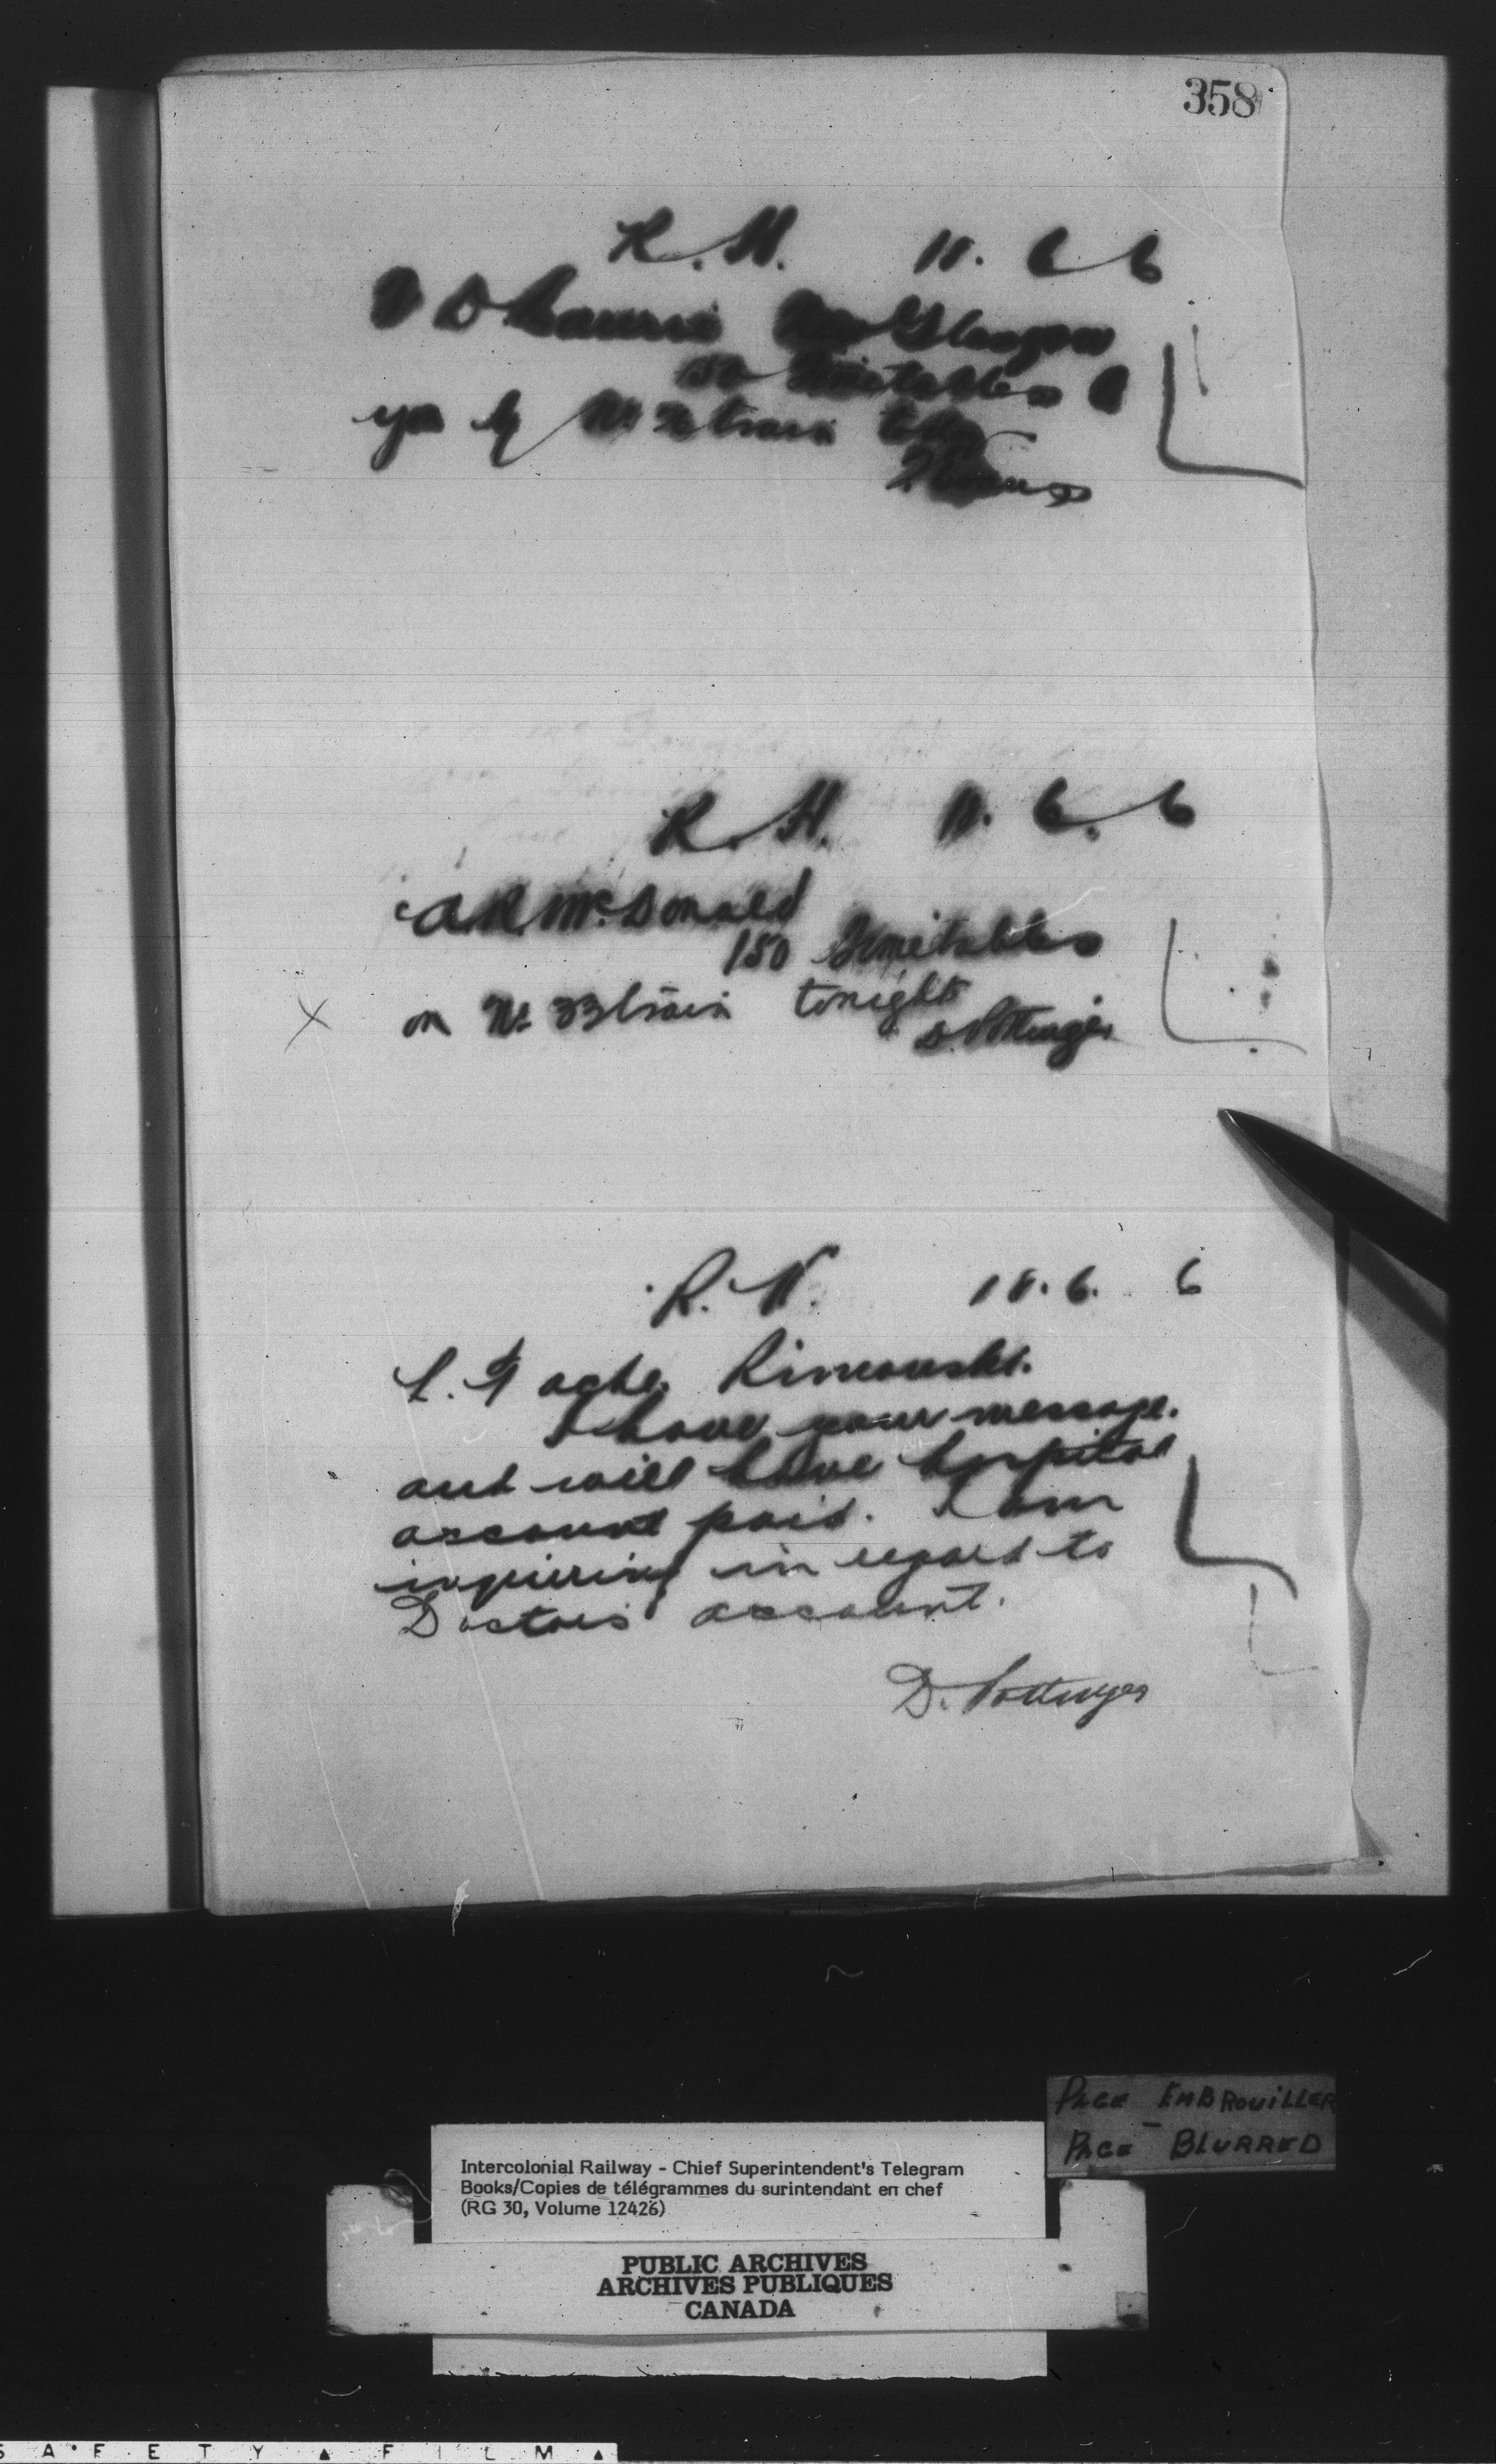 358
R. H. 11. 6 6
D Laurie New Glasgow
150 Timetables
by No train today
R. H. 11. 6. 6
A R McDonald
150 Timetables
on No 33 train tonight
D. Pottinger
X
R. H. 11. 6. 6
Rimouski.
I have your message.
and will have hospital
account paid. I am
inquiring in regard to
Doctors account.
D. Pottinger
PAGE EMBROUILLER
PAGE BLURRED
Intercolonial Railway - Chief Superintendent's Telegram
Books/Copies de télégrammes du surintendant en chef
(RG 30, Volume 12426)
PUBLIC ARCHIVES
ARCHIVES PUBLIQUES
CANADA
SAFETY ▲ FILM ▲